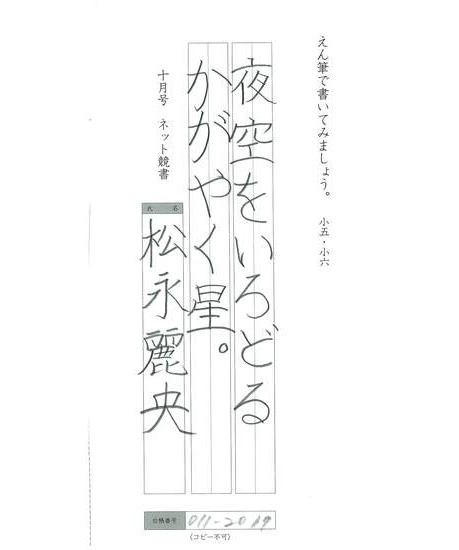 えん筆で書いてみましょう。 小五・小六
夜空をいろどる
かがやく星。
十月号 ネット競書
氏名
松永麗央
会員番号 011-2019
(コピー不可)